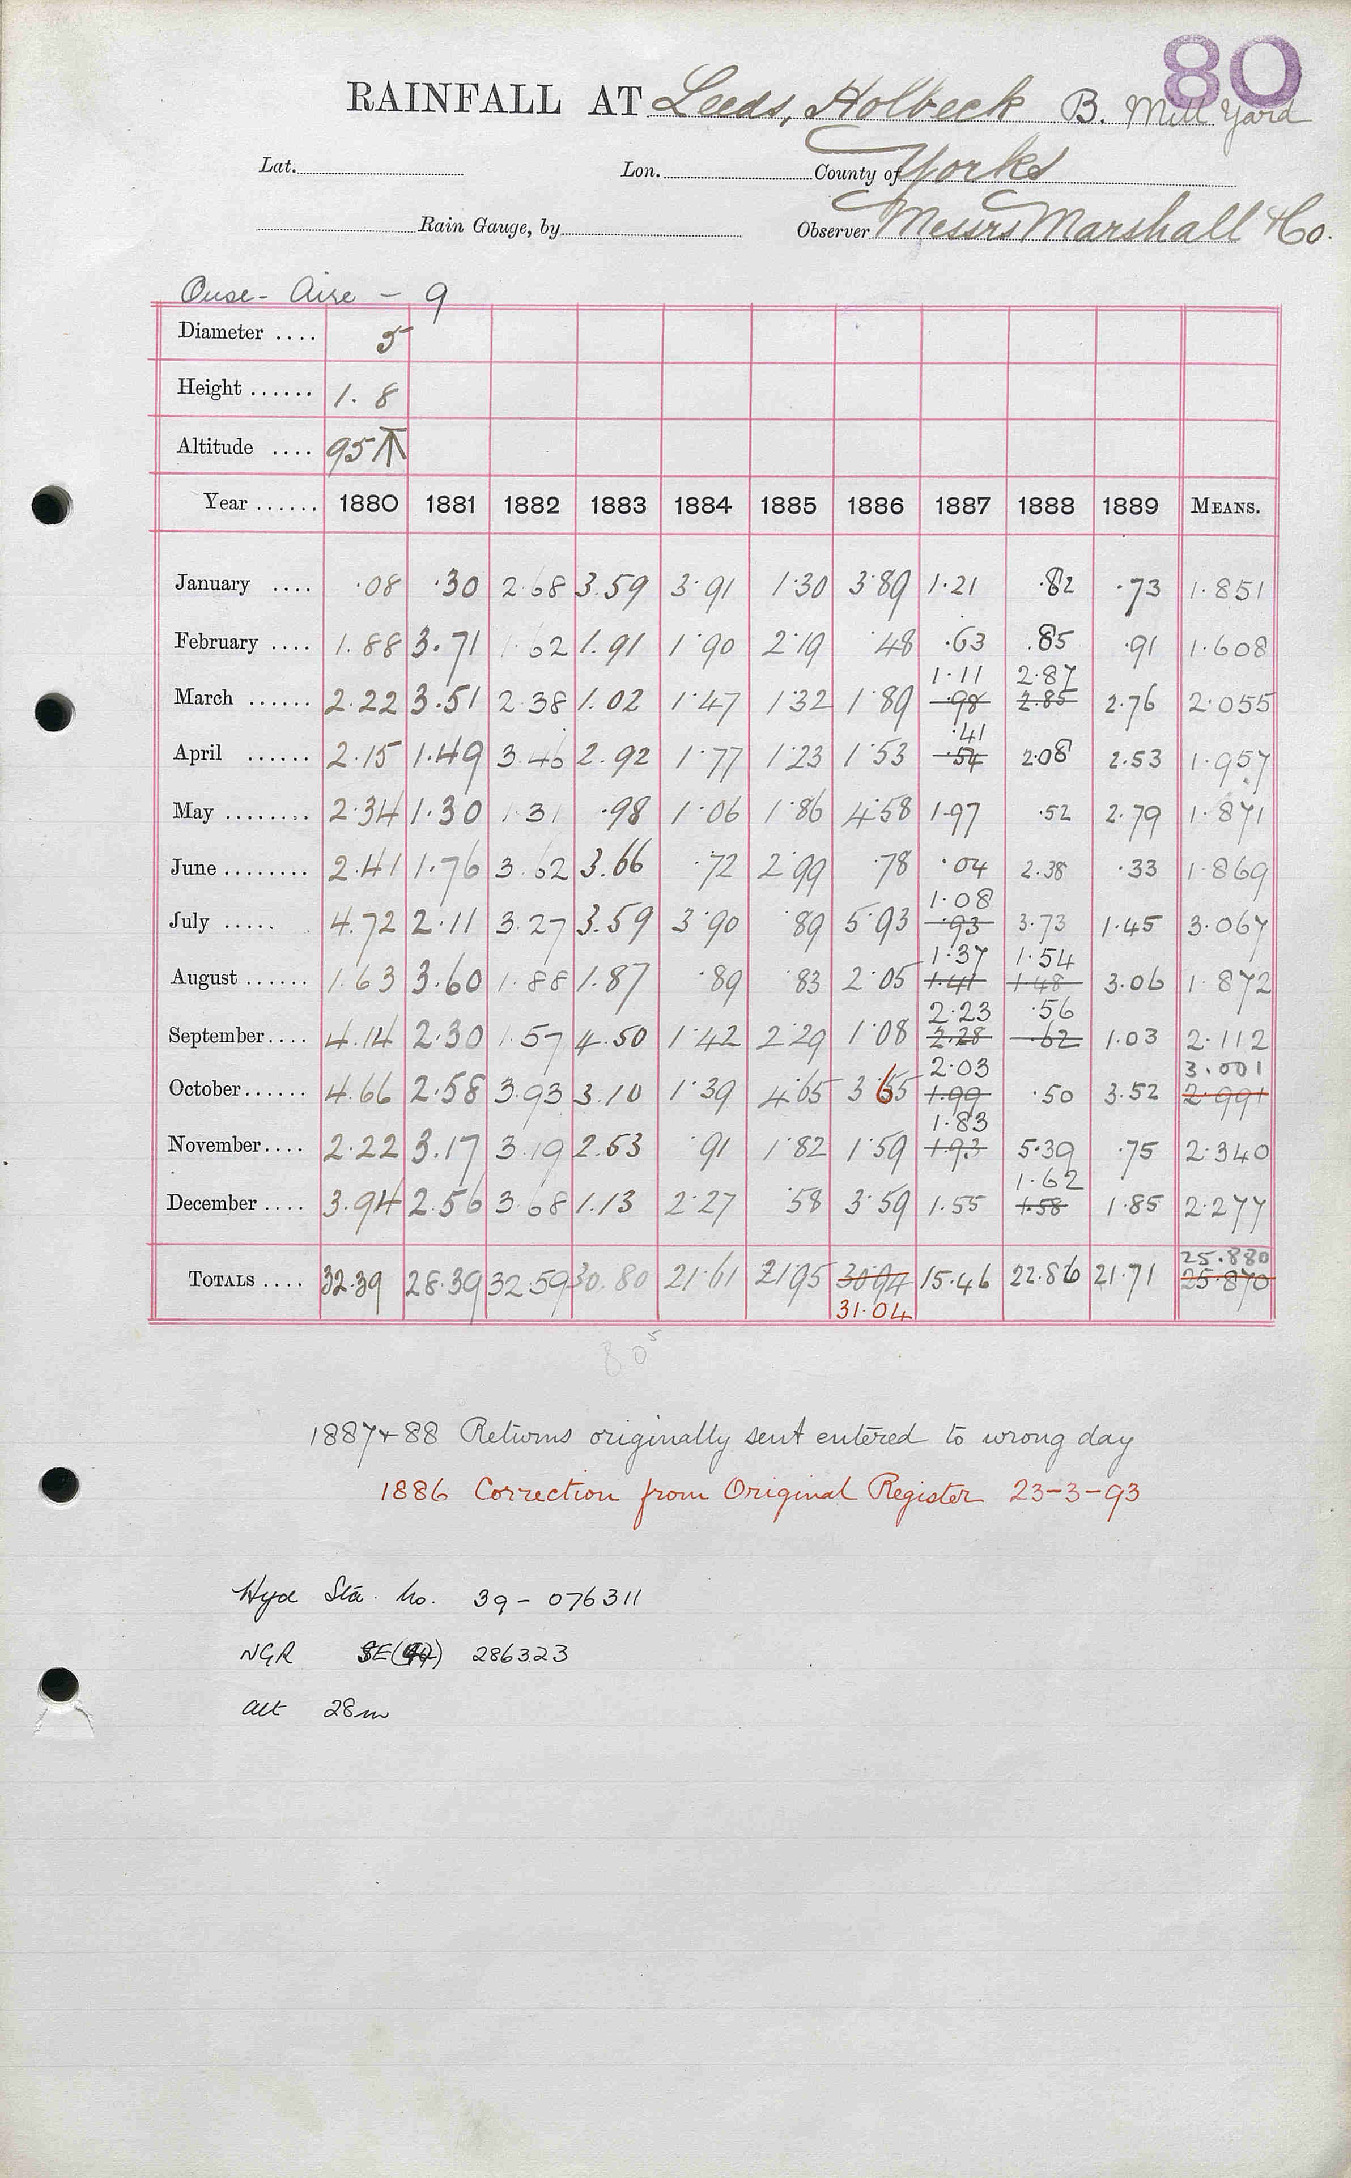 80
RAINFALL AT Leeds, Holbeck B. Mill Yard
Lat. Lon. County of Yorks
Rain Gauge, by Observer Messrs Marshall & Co.
Ouse - Aire - 9
Diameter .... 5
Height ...... 1.8
Altitude .... 95 T
Year ...... 1880 1881 1882 1883 1884 1885 1886 1887 1888 1889 MEANS.
January .... .08 .30 2.68 3.59 3.91 1.30 3.89 1.21 .82 .73 1.851
February .... 1.88 3.71 1.62 1.91 1.90 2.19 .48 .63 .85 .91 1.608
1.11 2.87
March ...... 2.22 3.51 2.38 1.02 1.47 1.32 1.89 .98 2.85 2.76 2.055
.41
April ...... 2.15 1.49 3.46 2.92 1.77 1.23 1.53 .54 2.08 2.53 1.957
May ........ 2.34 1.30 1.31 .98 1.06 1.86 4.58 1.97 .52 2.79 1.871
June ........ 2.41 1.76 3.62 3.66 .72 2.99 .78 .04 2.38 .33 1.869
1.08
July ..... 4.72 2.11 3.27 3.59 3.90 .89 5.93 .93 3.73 1.45 3.067
1.37 1.54
August ...... 1.63 3.60 1.88 1.87 .89 .83 2.05 1.41 1.48 3.06 1.872
2.23 .56
September.... 4.14 2.30 1.57 4.50 1.42 2.29 1.08 2.28 .62 1.03 2.112
2.03 3.001
October...... 4.66 2.58 3.93 3.10 1.39 4.65 3.65 1.99 .50 3.52 2.991
1.83
November.... 2.22 3.17 3.19 2.53 .91 1.82 1.59 1.93 5.39 .75 2.340
1.62
December .... 3.94 2.56 3.68 1.13 2.27 .58 3.59 1.55 1.58 1.85 2.277
25.880
TOTALS .... 32.39 28.39 32.59 30.80 21.61 21.95 30.94 15.46 22.86 21.71 25.870
31.04
80 5
1887 + 88 Returns originally sent entered to wrong day
1886 Correction from Original Register 23-3-93
Hyd Sta. No. 39 - 076311
NGR SE 286323
Alt 28m